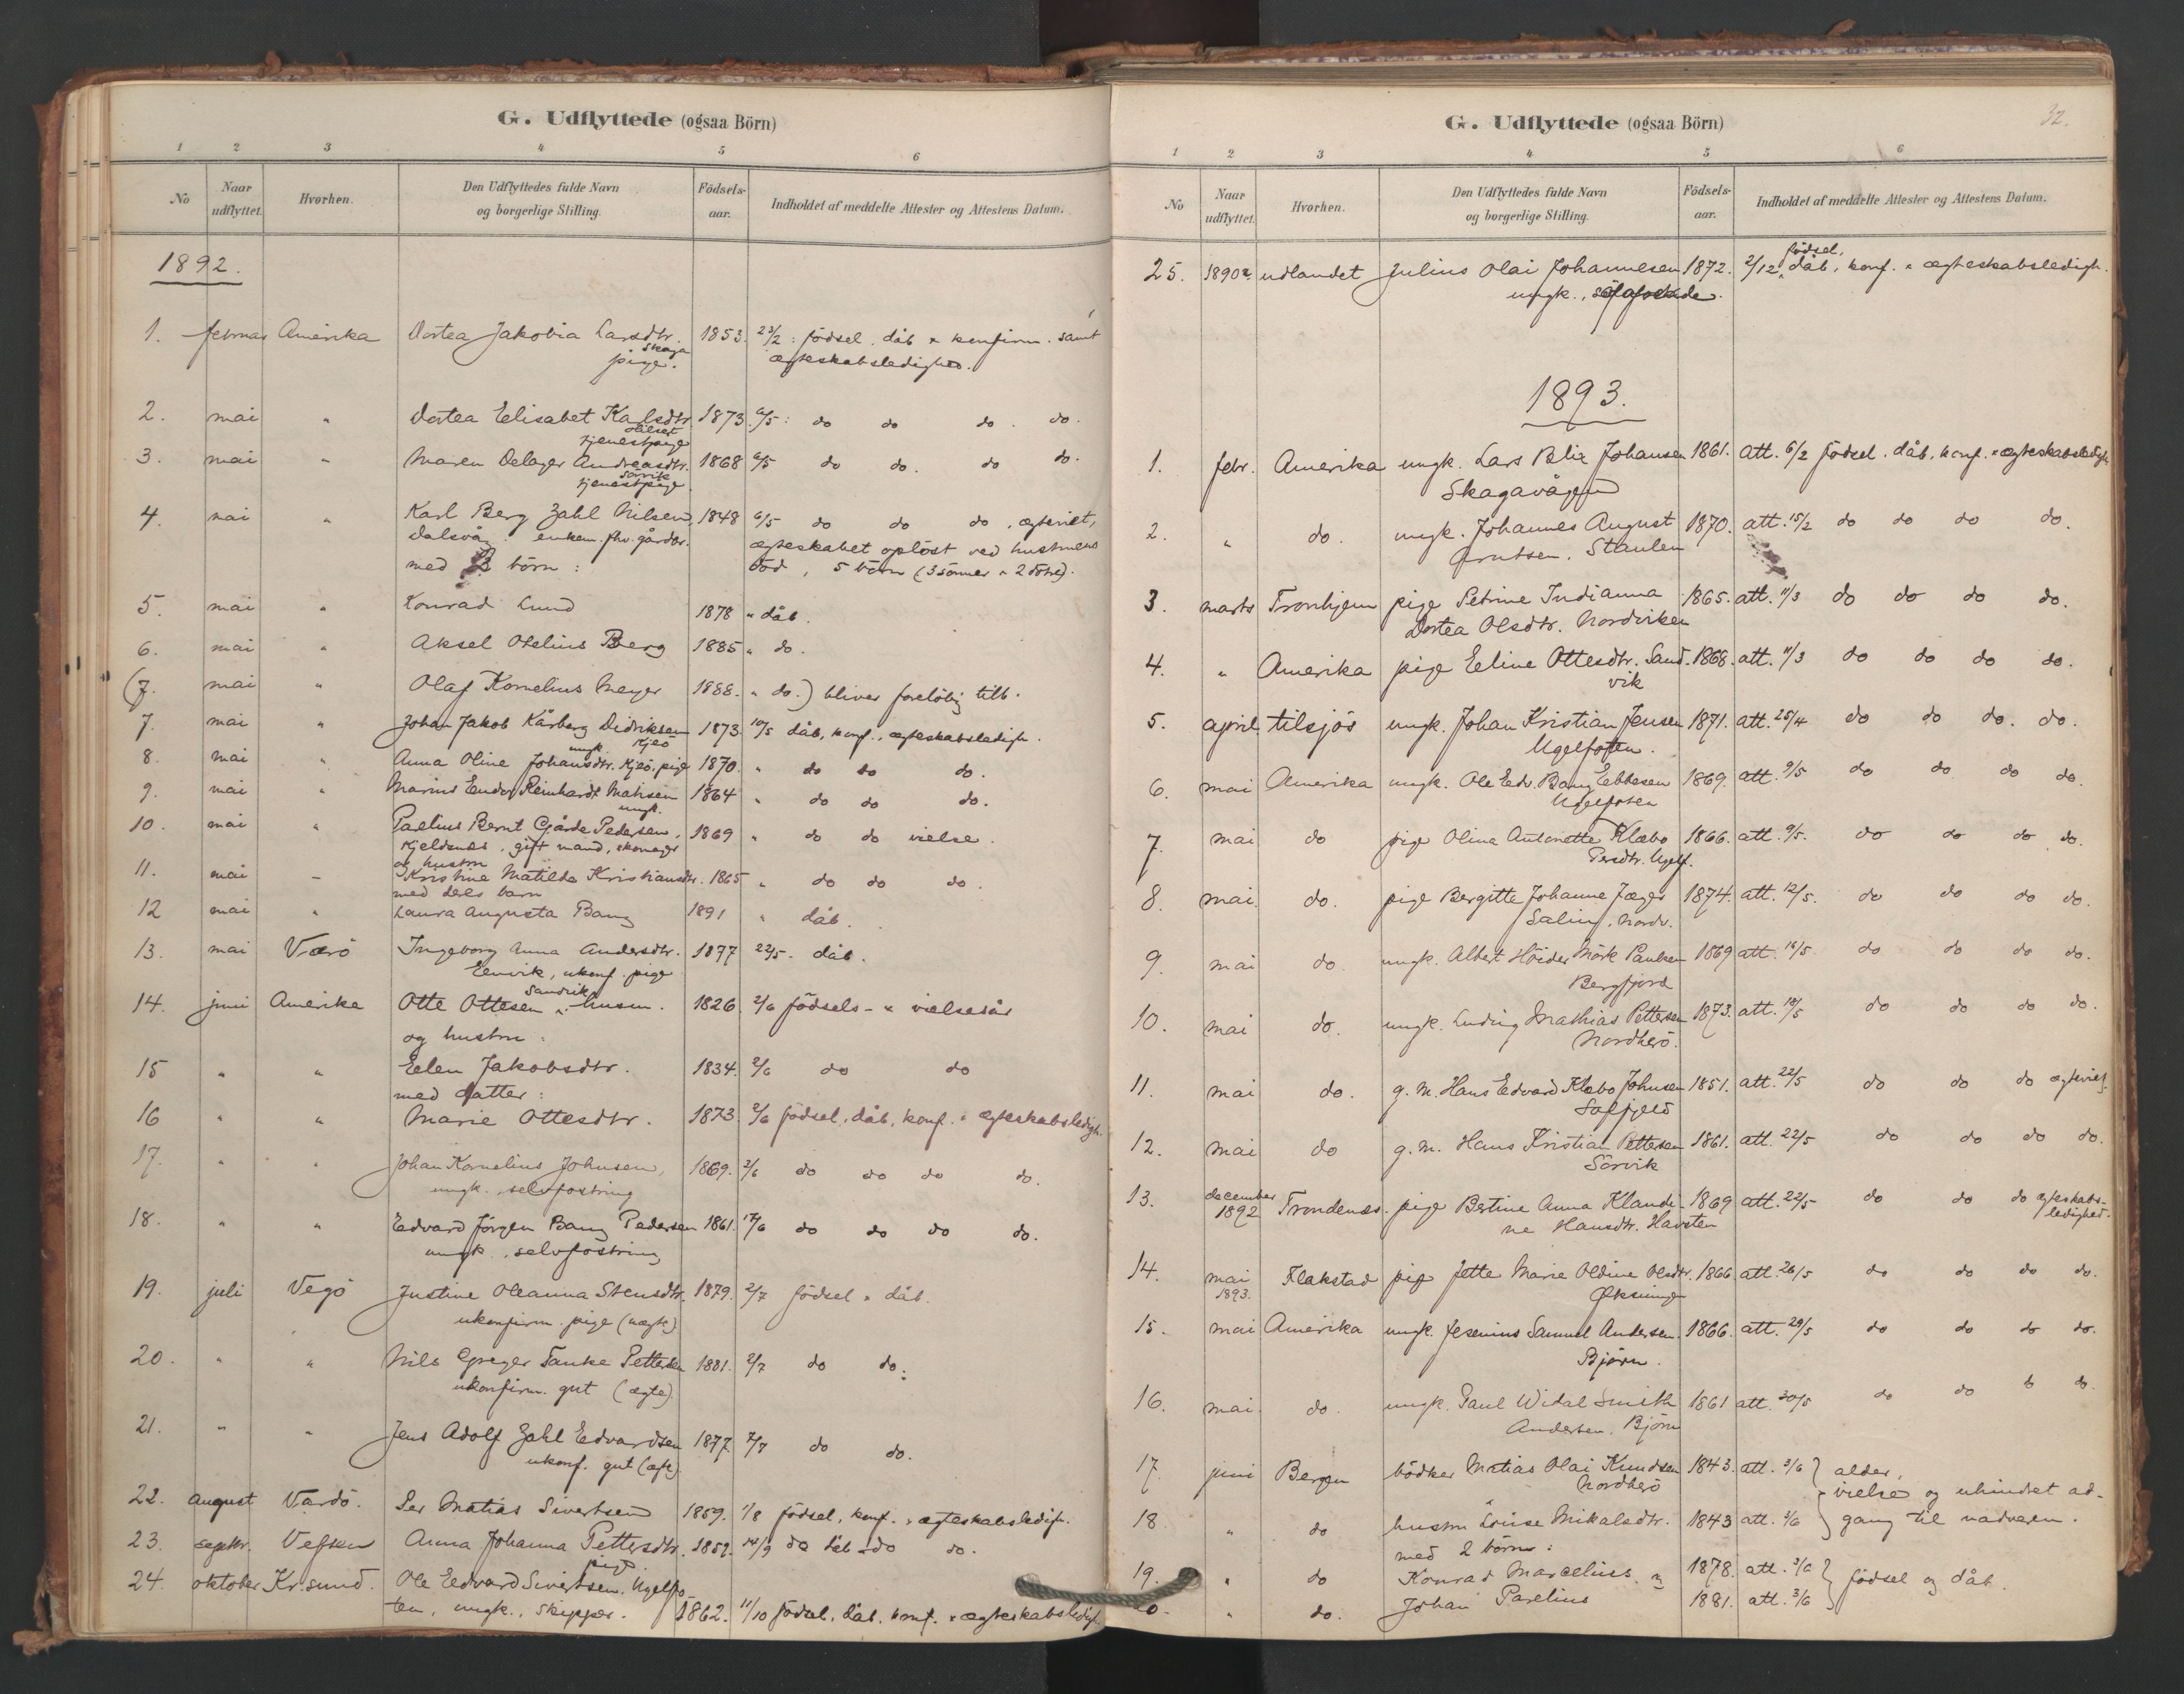 G. Udflyttede (ogsaa Börn)
1 2 3 4 5 6
No Naar udflyttet. Hvorhen. Den Udflyttedes fulde Navn og borgerlige Stilling. Födsels-aar. Indholdet af meddelte Attester og Attestens Datum.
1892.
1. februar Amerika Dortea Jakobia Larsdtr. 1853. 23/2: födsel, dåb & konfirm. samt
Skaga
pige. ægteskabsledighed.
2. mai " Dortea Elisabet Karlsdtr. 1873. 6/5: do do do. do.
tjenestpige
3. mai " Maren Delager Andreasdtr. 1868 6/5 do do. do do.
Sørvik
tjenestpige
4. mai " Karl Berg Zahl Nilsen, 1848 6/5 do do do, ægteviet,
Dalsvåg enkem. fhv. gårdbr. ægteskabet oplöst ved hustruens
med börn: död, 5 börn (3 sönner & 2 dötre).
5. mai " Konrad Lund 1878 " dåb.
6. mai " Aksel Otelius Berg 1885 " do.
(7. mai " Olaf Kornelius Meyer 1888. " do.) bliver forelöbig tilb.
7. mai " Johan Jakob Kårberg Didriksen 1873. 10/5 dåb, konf., ægteskabsledigh.
ungk. Kjeö
8. mai " Anna Oline Johansdtr. Kjeö, pige 1870. " do do do.
9. mai " Marius Eendor Reinhardt Mahsen 1864 " do do do.
ungk.
10. mai " Parelius Bernt Gjårde Pedersen, 1869 " do do vielse.
Kjeldsnes, gift mand, skomager
og hustru
11. mai " Kristine Matilde Kristiansdtr. 1865 " do do do.
med deres barn
12 mai " Laura Augusta Bang 1891 " dåb.
13. mai Værö Ingeborg Anna Andersdtr. 1877 22/5. dåb.
Eenvik, ukonf. pige
14. juni Amerika Otte Ottesen, husm. 1826. 2/6 födsels- & vielsesår
Sandvik
og hustru:
15 " " Eelen Jakobsdtr. 1834. 2/6 do do
med datter:
16 " " Marie Ottesdtr. 1873. 2/6 födsel, dåb, konf. & ægteskabsledigh.
17. " " Johan Kornelius Johnsen, 1869. 2/6 do do do do.
ungk. selvfostring
18. " " Eedvard Jörgen Bang Pedersen 1861. 17/6 do do do do.
ungk. selvfostring
19. juli Vegö Justine Oleanna Stensdtr. 1879. 2/7 födsel & dåb.
ukonfirm. pige (uægte)
20. " " Nils Greger Tanke Pettersen 1881. 2/7 do do.
ukonfirm. gut (ægte)
21. " " Jens Adolf Zahl Eedvardsen 1877. 7/7 do do.
ukonf. gut (ægte)
22. august Vardö. Per Matias Sivertsen 1859. 1/8 födsel, konf. & ægteskabsledigh.
23. septbr. Vefsen Anna Johanna Pettersdtr. 1859. 14/9 do dåb do do.
pige
24. oktober Kr.sund. Ole Eedvard Sivertsen, Ugelfo-
ten, ungk., skipper. 1862. 11/10 födsel, dåb, konf. & ægteskabsledigh.
32.
G. Udflyttede (ogsaa Börn)
1 2 3 4 5 6
No Naar udflyttet. Hvorhen. Den Udflyttedes fulde Navn og borgerlige Stilling. Födsels-aar. Indholdet af meddelte Attester og Attestens Datum.
födsel,
25. udlandet Julius Olai Johannesen 1872. 2/12 dåb, konf. & ægteskabsledigh.
ungk.,
1893.
1. febr. Amerika ungk. Lars Blix Johansen 1861. att. 6/2 födsel, dåb, konf. & ægteskabsledigh
Skagavågen
2. " do. ungk. Johannes August 1870. att. 15/2 do do do do.
Arntsen. Staulen
3. marts Tronhjem pige Petrine Indianna 1865. att. 11/3 do do do do.
Dortea Olsdtr. Nordviken
4. " Amerika pige Eeline Ottesdtr. Sand- 1868. att. 11/3 do do do do.
vik
5. april tilsjös ungk. Johan Kristian Jensen 1871. att. 25/4 do do do. do.
Ugelfoten.
6. mai Amerika ungk. Ole Edv. Bang Eebbesen 1869. att. 9/5 do do do do.
Ugelfoten
7. mai do pige Olina Antonette Klæbo 1866. att. 9/5. do do do do.
Persdtr. Ugelf.
8. mai. do. pige Bergitte Johanne Jæger 1874. att. 12/5. do do do do.
Salin, Nordv.
9. mai do. ungk. Albert Höider Mörk Paulsen 1869 att. 16/5 do do do do.
Bergfjord
10. mai do. ungk. Ludvig Mathias Pettersen 1873. att. 18/5 do do do do.
Nordherö.
11. mai do. g. m. Hans Edvard Klæbo Johnsen 1851. att. 22/5 do do do ægteviet
12. mai do g. m. Hans Kristian Pettersen 1861. att. 22/5 do do do do.
Sörvik
13. december Trondenæs. pige Bertine Anna Klaudi- 1869 att. 22/5 do do do ægteskabs-
1892 ne Hansdtr. Havsten ledighed.
14. mai Flakstad pige Jette Marie Oldine Olsdtr. 1866. att. 26/5 do do do do.
1893. Öksningen
15. mai Amerika ungk. Jesenius Samuel Andersen. 1866. att. 29/5 do do do do.
Björn.
16. mai. do. ungk. Paul Widal Smith 1861 att. 30/5 do do do do.
Andersen. Björn
17. juni Bergen bödker Matias Olai Knudsen 1843. att. 3/6 } alder,
Nordherö vielse og uhindret ad-
18. " do hustru Lovise Mikalsdtr. 1843 att. 3/6 } gang til nadveren.
med 2 börn:
19. " do Konrad Marcelius & 1878. att. 3/6 } födsel og dåb.
20. " do. Johan Parelius 1881. att. 3/6